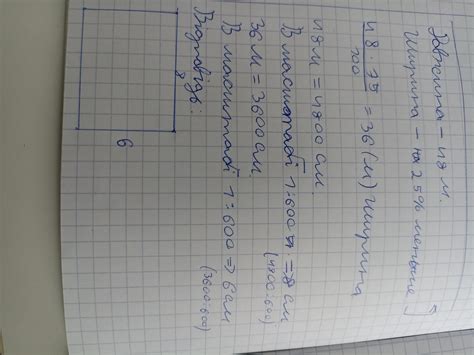 Довжина – 48 м.
Ширина – на 25% менше
48 · 75 / 100 = 36 (м) ширина
48 м = 4800 см.
В масштабі 1:600 => 8 см
(4800:600)
36 м = 3600 см.
В масштабі 1:600 => 6 см
(3600:600)
Відповідь:
8
6